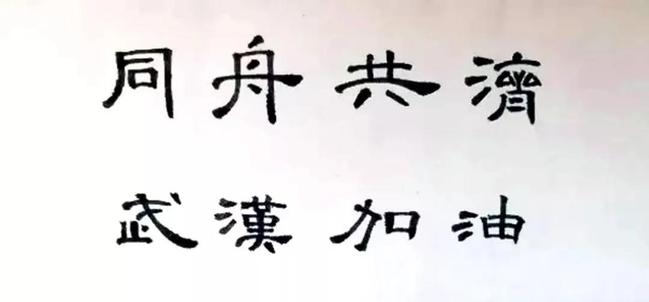 同舟共濟
武漢加油